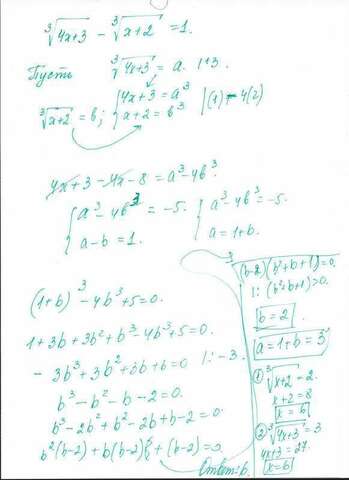 ∛(4x+3) − ∛(x+2) = 1.
Пусть ∛(4x+3) = a. ↑3.
∛(x+2) = b; { 4x+3 = a³
a+2 = b³ | (1) − 4(2)
4x+3−4x−8 = a³−4b³.
{ a³−4b³ = −5. { a³−4b³ = −5.
a−b = 1. a = 1+b.
(1+b)³−4b³+5=0.
1+3b+3b²+b³−4b³+5=0.
−3b³+3b²+3b+6=0 |:−3.
b³−b²−b−2=0.
b³−2b²+b²−2b+b−2=0.
b²(b−2)+b(b−2)+(b−2)=0.
(b−2)(b²+b+1)=0.
|: (b²+b+1)>0.
b=2.
a=1+b=3
① ∛(x+2) = 2.
x+2=8
x=6
② ∛(4x+3)=3
4x+3=27.
x=6
Ответ: 6.